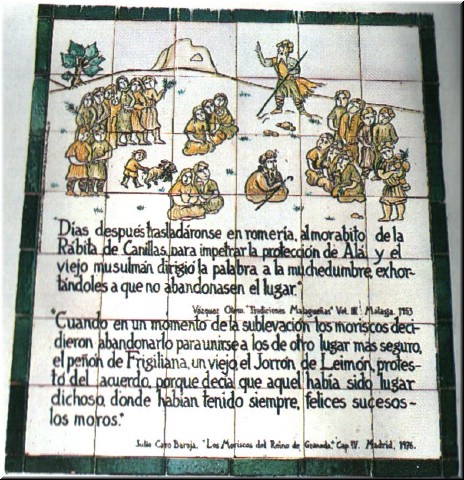 "Días después trasladáronse en romería, al morabito de la
Rábita de Canillas, para impetrar la protección de Alá, y el
viejo musulmán dirigió la palabra a la muchedumbre, exhor-
tándoles a que no abandonasen el lugar."
Vázquez Otero. "Tradiciones Malagueñas" Vol. III. Málaga 1953
"Cuando en un momento de la sublevación los moriscos deci-
dieron abandonarlo para unirse a los de otro lugar más seguro,
el peñón de Frigiliana, un viejo, el Jorrón de Leimón, protes-
tó del acuerdo, porque decía que aquel había sido lugar
dichoso, donde habían tenido siempre, felices sucesos-
los moros."
Julio Caro Baroja. "Los Moriscos del Reino de Granada." Cap. IV. Madrid, 1976.